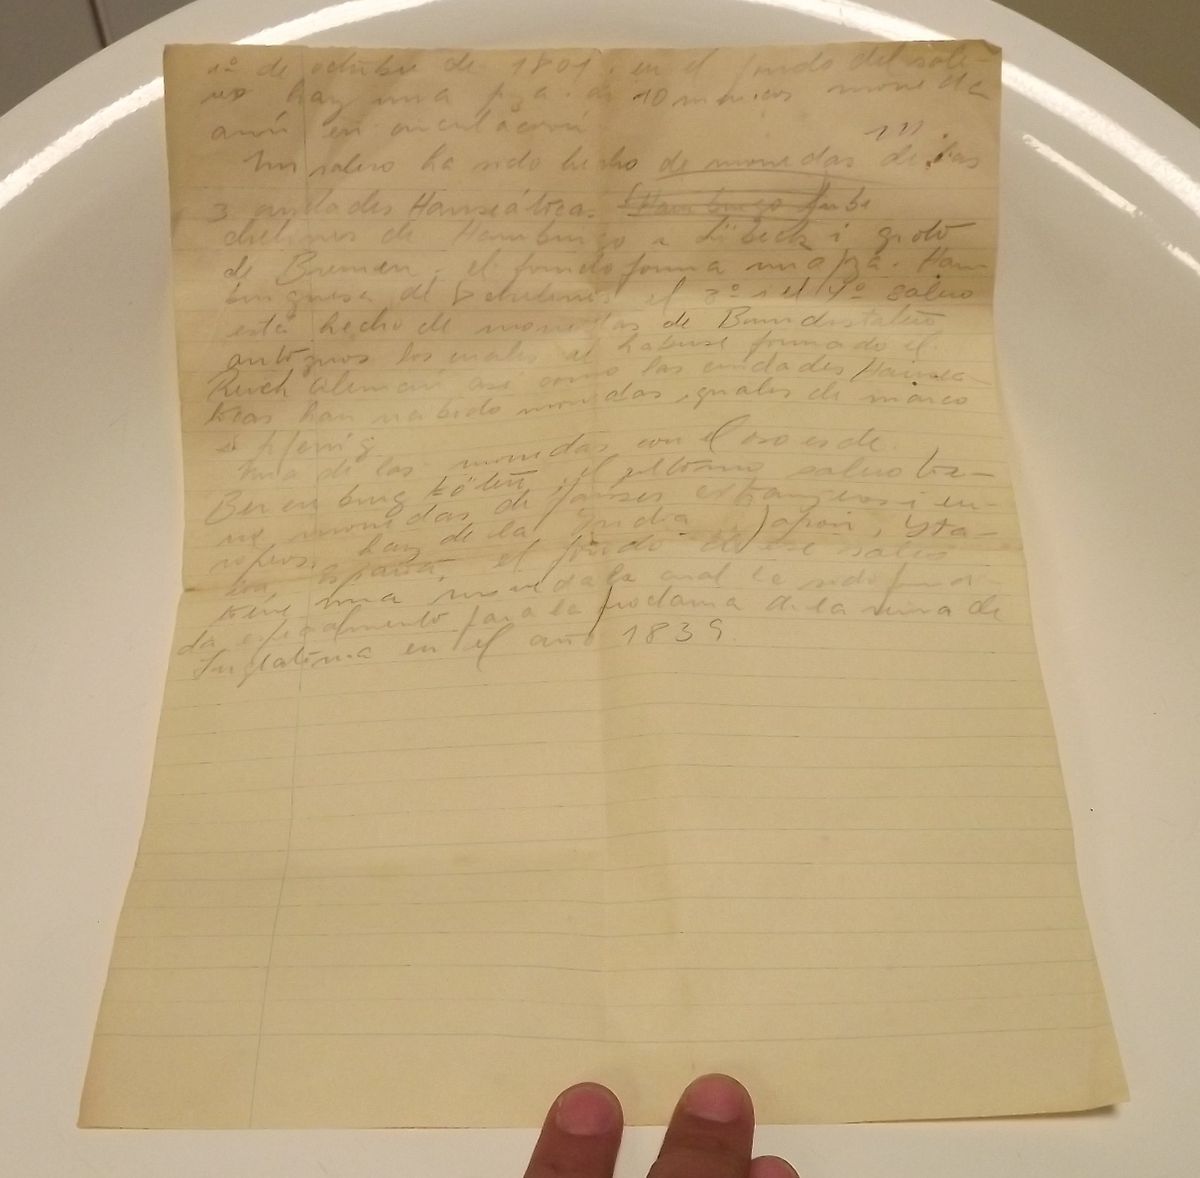 1º de octubre de 1801. en el fondo del sale-
ro hay una pza. de 10 marcos moneda
aún en circulación
Un salero ha sido hecho de monedas de las
3 ciudades Hanseáticas
chelines de Hamburgo i Lübeck i
de Bremen. el fondo forma una pza. Ham-
burguesa de chelines el 3º i el 4º salero
está hecho de monedas de
antiguos los cuales al haberse formado el
Reich Alemán así como las ciudades Hanseá-
ticas han recibido monedas iguales de marco
i pfenig
Una de las monedas con el oso es de
Berenburg Köten, el último salero tie-
ne monedas de países extranjeros i eu-
ropeos, hay de la India, Japón, Yta-
lia, España, el fondo de ese salero
tiene una moneda la cual ha sido fundi-
da para la proclama de la reina de
Inglaterra en el año 1839.